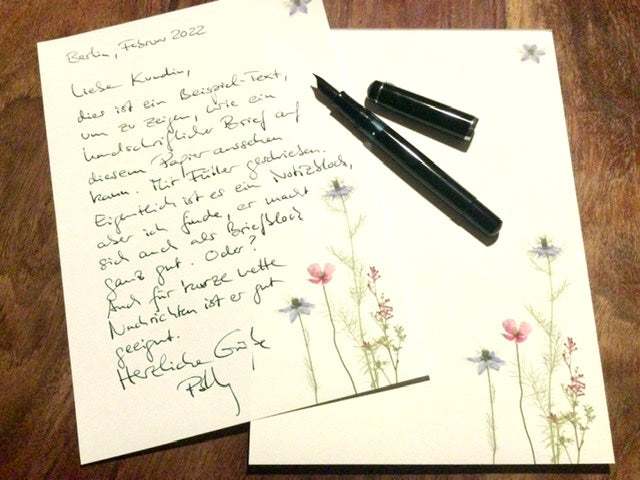 Berlin, Februar 2022
Liebe Kundin,
dies ist ein Beispiel-Text,
um zu zeigen, wie ein
handschriftlicher Brief auf
diesem Papier aussehen
kann. Mit Füller geschrieben.
Eigentlich ist es ein Notizblock,
aber ich finde, er macht
sich auch als Briefblock
ganz gut. Oder?
Auch für kurze nette
Nachrichten ist er gut
geeignet.
Herzliche Grüße